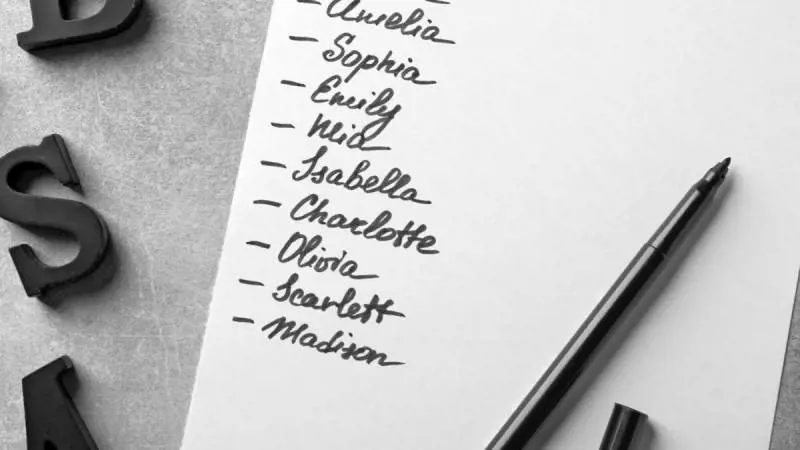 - Amelia
- Sophia
- Emily
- Mia
- Isabella
- Charlotte
- Olivia
- Scarlett
- Madison
S
A